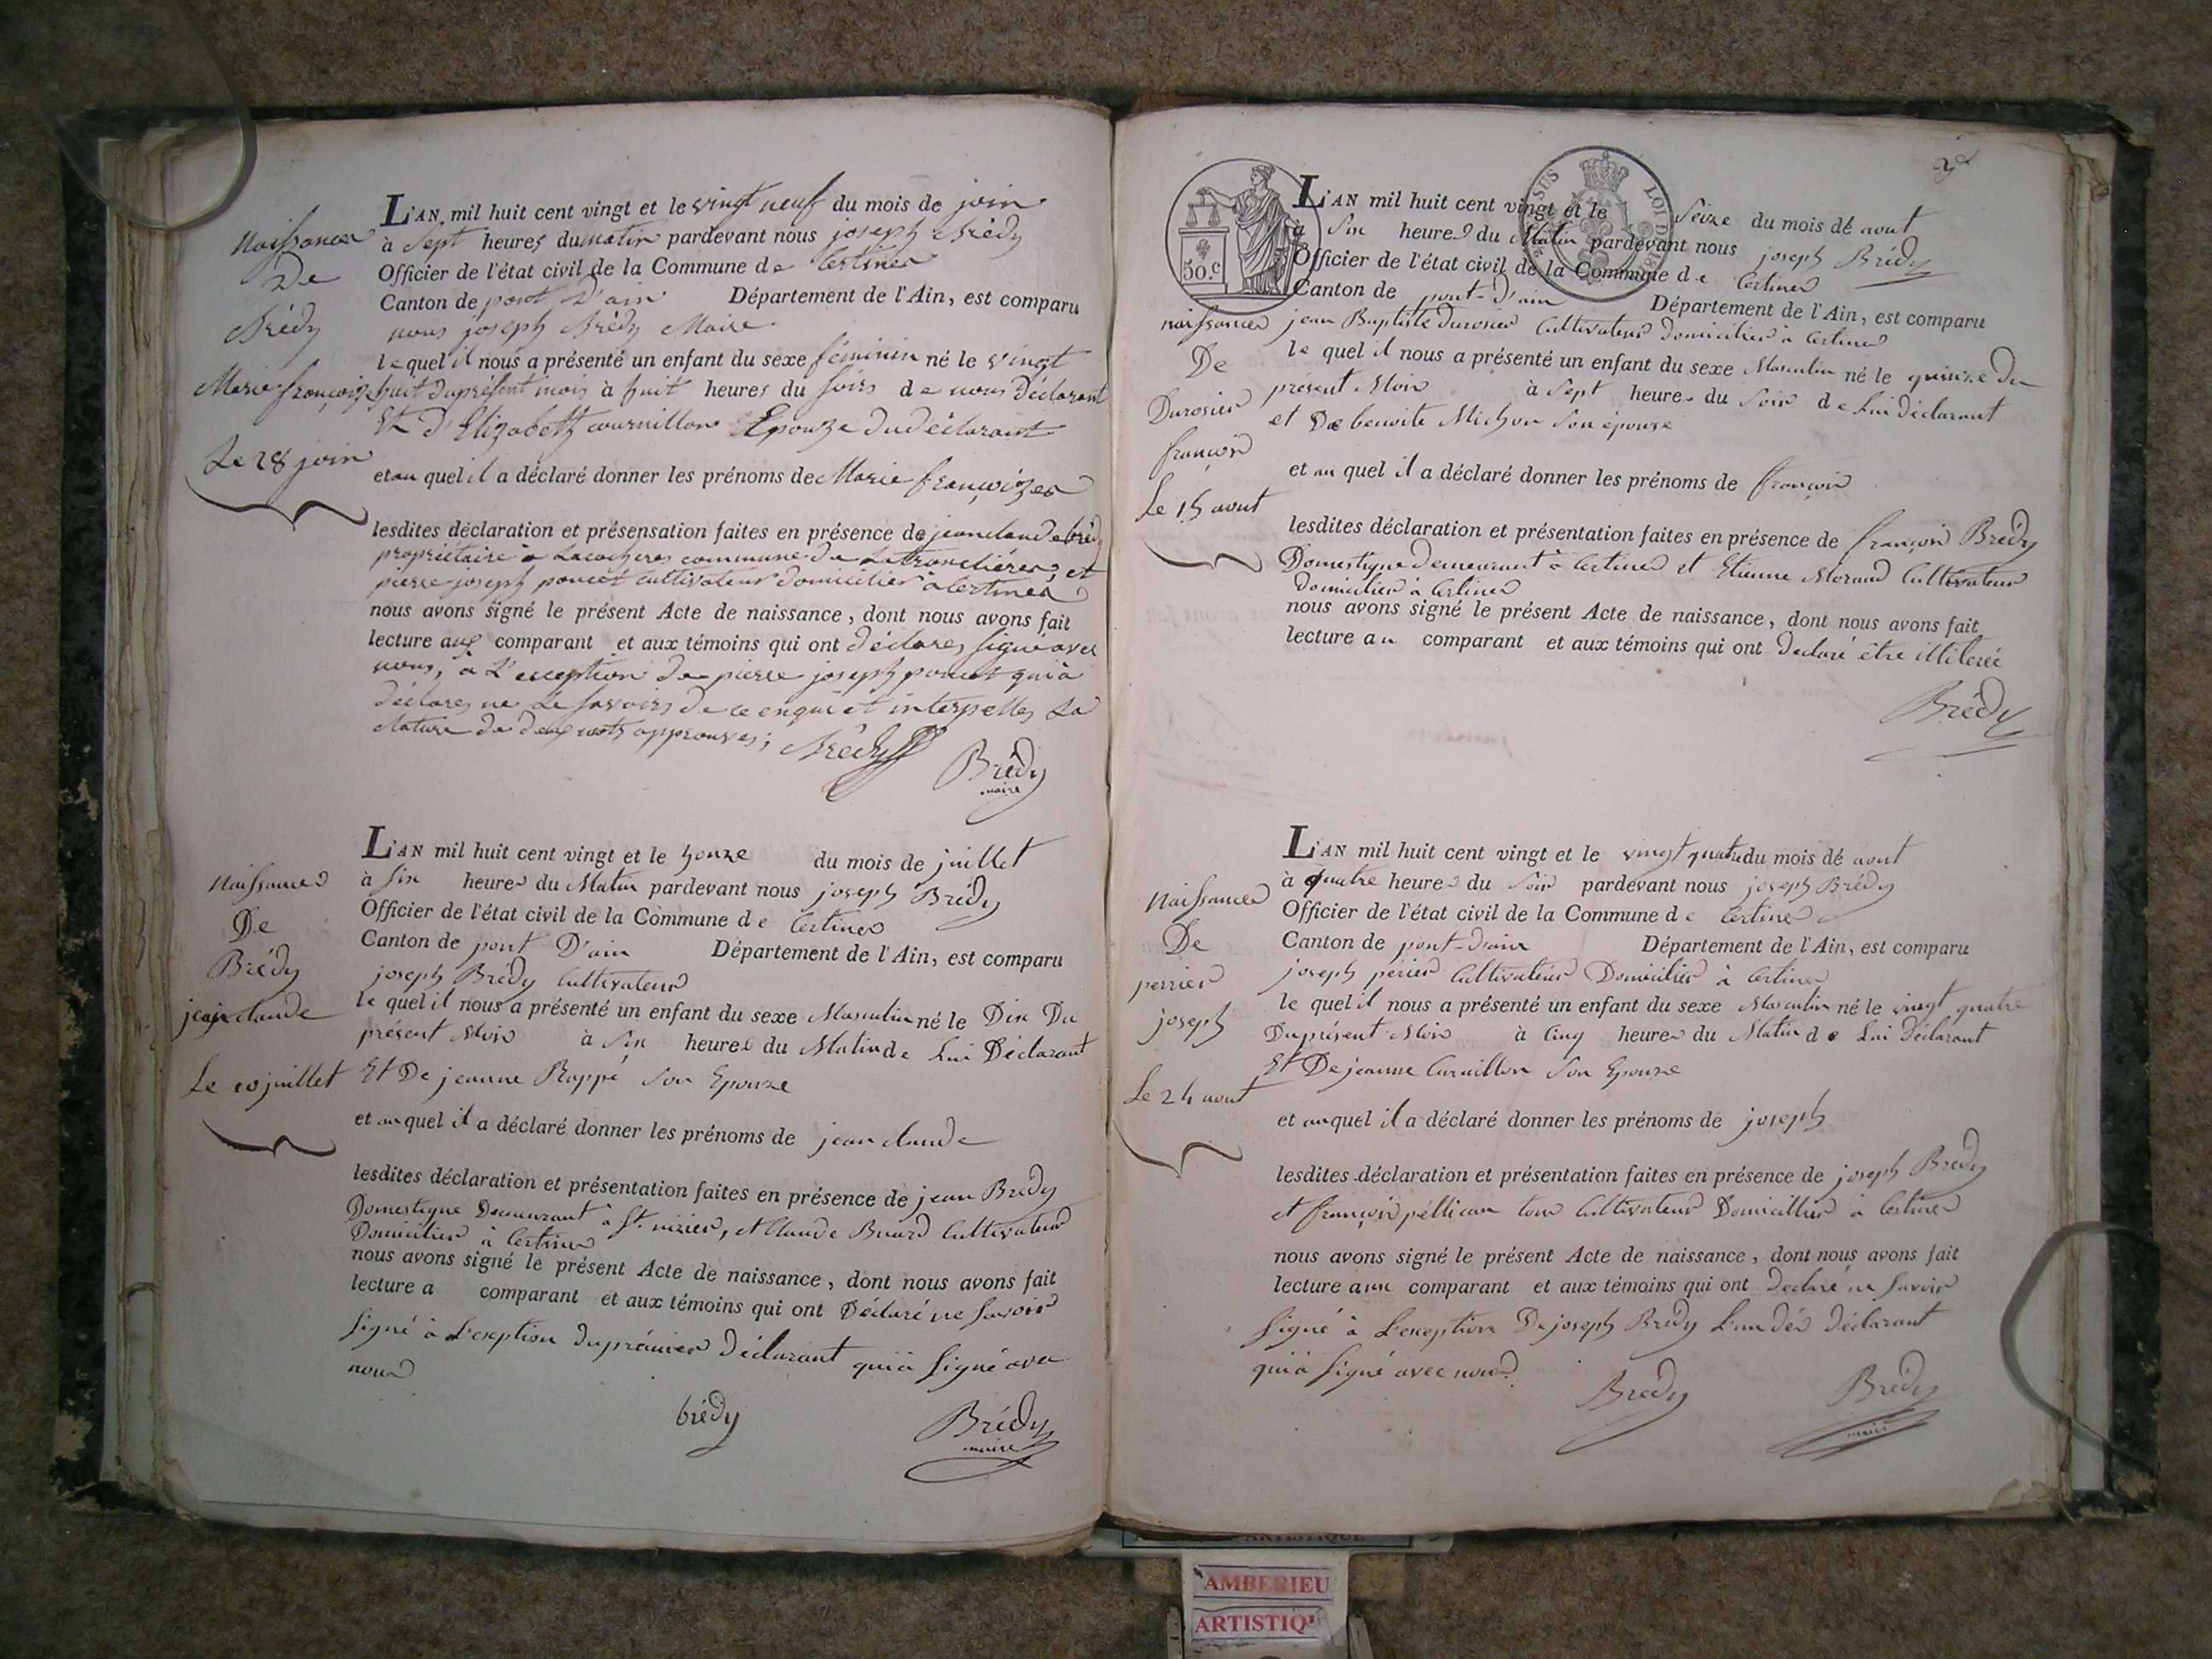 Naissances
De
Brédy
Marie françoize
Le 28 join
L'AN mil huit cent vingt et le vingt neuf du mois de join
à Sept heures du matin pardevant nous joseph Brédy
Officier de l'état civil de la Commune de Certines
Canton de pont D'ain Département de l'Ain, est comparu
nous joseph Brédy Maire
lequel il nous a présenté un enfant du sexe féminin né le vingt
huit du présent mois à huit heures du soirs de nous Déclarant
Et d'Elizabeth cournillon Epouze du déclarant
et au quel il a déclaré donner les prénoms de Marie françoizes
lesdites déclaration et présensation faites en présence de jean claude brédy
propriétaire à Lacocheres commune de Latranclières, et
pierre joseph poncet cultivateur domicilier à Certines
nous avons signé le présent Acte de naissance, dont nous avons fait
lecture aux comparant et aux témoins qui ont déclares signé avec
nous, à L'exception de pierre joseph poncet qui à
déclares ne Le savoirs de ce enquit et interpelles La
Nature de deux mots approuves;
Brédy
Brédy
maire
Naissances
De
Brédy
jean claude
Le 10 juillet
L'AN mil huit cent vingt et le honze du mois de juillet
à six heures du Matin pardevant nous joseph Brédy
Officier de l'état civil de la Commune de Certines
Canton de pont D'ain Département de l'Ain, est comparu
joseph Brédy Cultivateur
le quel il nous a présenté un enfant du sexe Masculin né le Dix Du
présent Mois à six heures du Matin de Lui Déclarant
Et De jeanne Rappé son Epouze
et au quel il a déclaré donner les prénoms de jean claude
lesdites déclaration et présentation faites en présence de jean Brédy
Domestique Demeurant à St. nizier, et Claude Buard Cultivateur
Domicilier à Certines
nous avons signé le présent Acte de naissance, dont nous avons fait
lecture a comparant et aux témoins qui ont Déclaré ne savoir
signé à L'exeption du prémier Déclarant qui à signé avec
nous
brédy
Brédy
maire
50.c
LOI DE
L'AN mil huit cent vingt et le Seize du mois de aout
à Six heures du Matin pardevant nous joseph Brédy
Officier de l'état civil de la Commune de Certines
Canton de pont-D'ain Département de l'Ain, est comparu
naissances
De
Durosier
françois
Le 15 aout
jean Baptiste Durosier Cultivateur Domicilier à Certines
le quel il nous a présenté un enfant du sexe Masculin né le quinze du
présent Mois à Sept heures du Soir de Lui déclarant
et De benoite Michon son épouze
et au quel il a déclaré donner les prénoms de françois
lesdites déclaration et présentation faites en présence de françois Brédy
Domestique Demeurant à Certines et Etienne Morand Cultivateur
domicilier à Certines
nous avons signé le présent Acte de naissance, dont nous avons fait
lecture au comparant et aux témoins qui ont Declaré être illiterée
Brédy
Naissances
De
perrier
joseph
Le 24 aout
L'AN mil huit cent vingt et le vingt quatre du mois de aout
à quatre heures du soir pardevant nous joseph Brédy
Officier de l'état civil de la Commune de Certines
Canton de pont-D'ain Département de l'Ain, est comparu
joseph périer Cultivateur Domicilier à Certines
le quel il nous a présenté un enfant du sexe Masculin né le vingt quatre
Du présent Mois à Cinq heures du Matin de Lui déclarant
Et De jeanne Curnillon son Epouze
et au quel il a déclaré donner les prénoms de joseph
lesdites déclaration et présentation faites en présence de joseph Brédy
et françois péllican tous Cultivateur Domicillier à Certines
nous avons signé le présent Acte de naissance, dont nous avons fait
lecture aux comparant et aux témoins qui ont Declaré ne Savoir
Signé à L'exeption De joseph Brédy L'un dés déclarant
qui à signé avec nous
Bredy
Brédy
maire
AMBERIEU
ARTISTIQU